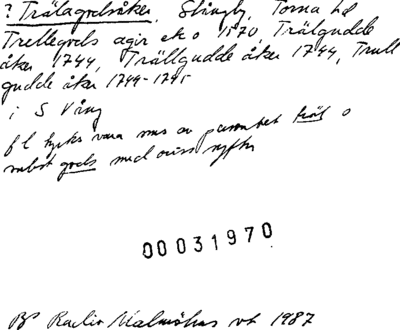 ? Trälagodsåker, Slingby, Torna hd
Trellegods agir eko 1570, Trälgudde
åker 1744, Trällgudde åker 1744, Trull
gudde åker 1744-1745
i S Vång
f l tycks vara ms av paronbet träl o
subst gods med oviss syftn
00031970
BP Radio Malmöhus vt 1987